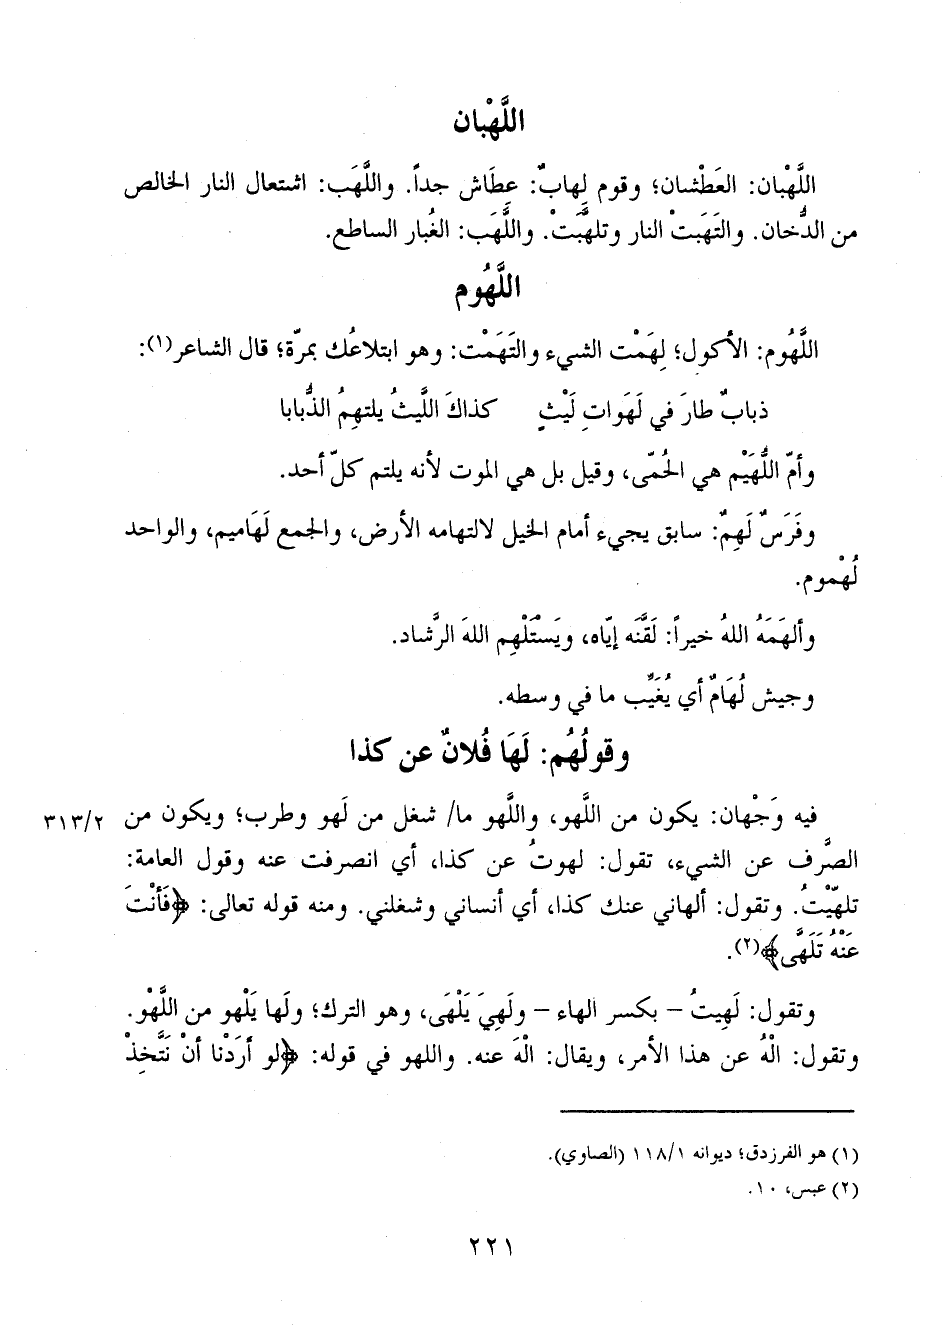 اللَّهْبان
اللَّهْبان: العَطْشان؛ وقوم لِهابٌ: عِطَاش جداً. واللَّهَب: اشتعال النار الخالص
من الدُّخان. والتَهَبَتْ النار وتلهَّبَتْ. واللَّهَب: الغُبار الساطع.
اللَّهُوم
اللَّهُوم: الأكول؛ لِهَمْت الشيء والتَهَمْت: وهو ابتلاعُك بمرّة؛ قال الشاعر(١):
ذبابٌ طارَ في لَهَواتِ لَيْثٍ كذاكَ اللَّيثُ يلتهِمُ الذُّبابا
وأمّ اللُّهَيْم هي الحُمّى، وقيل بل هي الموت لأنه يلتم كلّ أحد.
وفَرَسٌ لَهِمٌ: سابق يجيء أمام الخيل لالتهامه الأرض، والجمع لَهَاميم، والواحد
لُهْموم.
وألهَمَهُ اللهُ خيراً: لَقَّنَه إيّاه، ويَسْتَلْهِم اللهَ الرَّشاد.
وجيش لُهَامٌ أي يُغَيِّب ما في وسطه.
وقولُهُم: لَهَا فُلانٌ عن كذا
فيه وَجْهان: يكون من اللَّهو، واللَّهو ما/ شغل من لَهو وطرب؛ ويكون من ٣١٣/٢
الصَّرف عن الشيء، تقول: لهوتُ عن كذا، أي انصرفت عنه وقول العامة:
تلهّيْتُ. وتقول: ألهاني عنك كذا، أي أنساني وشغلني. ومنه قوله تعالى: ﴿فَأنْتَ
عَنْهُ تَلَهَّى﴾(٢).
وتقول: لَهِيتُ – بكسر الهاء – ولَهِيَ يَلْهَى، وهو الترك؛ ولَها يَلْهو من اللَّهْو.
وتقول: الْهُ عن هذا الأمر، ويقال: الْهَ عنه. واللهو في قوله: ﴿لو أرَدْنا أنْ نَتَّخِذْ
(١) هو الفرزدق؛ ديوانه ١١٨/١ (الصاوي).
(٢) عبس، ١٠.
٢٢١